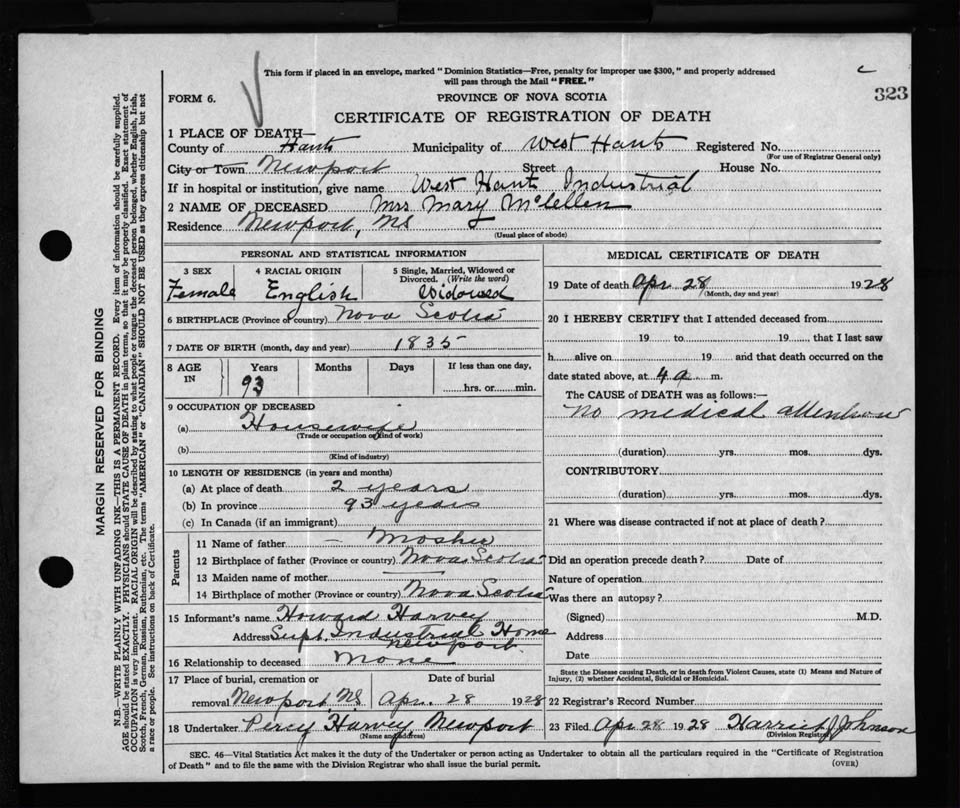 This form if placed in an envelope, marked "Dominion Statistics—Free, penalty for improper use $300," and properly addressed
will pass through the Mail "FREE."
c
323
FORM 6.
PROVINCE OF NOVA SCOTIA
CERTIFICATE OF REGISTRATION OF DEATH
1 PLACE OF DEATH—
County of Hants Municipality of West Hants Registered No.
(For use of Registrar General only)
City or Town Newport Street House No.
If in hospital or institution, give name West Hants Industrial
2 NAME OF DECEASED Mrs Mary McLellen
Residence Newport, NS
(Usual place of abode)
PERSONAL AND STATISTICAL INFORMATION
3 SEX 4 RACIAL ORIGIN 5 Single, Married, Widowed or
Divorced. (Write the word)
Female English Widowed
6 BIRTHPLACE (Province or country) Nova Scotia
7 DATE OF BIRTH (month, day and year) 1835
8 AGE IN Years Months Days If less than one day,
93 hrs. or min.
9 OCCUPATION OF DECEASED
(a) Housewife
(Trade or occupation or kind of work)
(b)
(Kind of industry)
10 LENGTH OF RESIDENCE (in years and months)
(a) At place of death 2 years
(b) In province 93 years
(c) In Canada (if an immigrant)
Parents
11 Name of father — Mosher
12 Birthplace of father (Province or country) Nova Scotia
13 Maiden name of mother —
14 Birthplace of mother (Province or country) Nova Scotia
15 Informant's name Howard Harvey
Address Supt. Industrial Home
Newport
16 Relationship to deceased None
17 Place of burial, cremation or Date of burial
removal Newport, NS Apr. 28 1928
18 Undertaker Percy Harvey, Newport
(Name and address)
MEDICAL CERTIFICATE OF DEATH
19 Date of death Apr 28 1928
(Month, day and year)
20 I HEREBY CERTIFY that I attended deceased from
19 to 19 that I last saw
h alive on 19 and that death occurred on the
date stated above, at 4 a m.
The CAUSE of DEATH was as follows:—
No medical attention
(duration) yrs. mos. dys.
CONTRIBUTORY
(duration) yrs. mos. dys.
21 Where was disease contracted if not at place of death?
Did an operation precede death? Date of
Nature of operation
Was there an autopsy?
(Signed) M.D.
Address
Date
State the Disease causing Death, or in death from Violent Causes, state (1) Means and Nature of
Injury, (2) whether Accidental, Suicidal or Homicidal.
22 Registrar's Record Number
23 Filed Apr 28 1928 Harriet J Johnson
(Division Registrar)
SEC. 46—Vital Statistics Act makes it the duty of the Undertaker or person acting as Undertaker to obtain all the particulars required in the "Certificate of Registration
of Death" and to file the same with the Division Registrar who shall issue the burial permit.
(OVER)
MARGIN RESERVED FOR BINDING
N.B.—WRITE PLAINLY WITH UNFADING INK—THIS IS A PERMANENT RECORD. Every item of information should be carefully supplied.
AGE should be stated EXACTLY. PHYSICIANS should STATE CAUSE OF DEATH in plain terms, so that it may be properly classified. Exact statement of
OCCUPATION is very important. RACIAL ORIGIN will be described by stating to what people or tongue the deceased person belonged, whether English, Irish,
Scotch, French, German, Russian, Ruthenian, etc. The terms "AMERICAN" or "CANADIAN" SHOULD NOT BE USED as they express citizenship but not
a race or people. See instructions on back of Certificate.